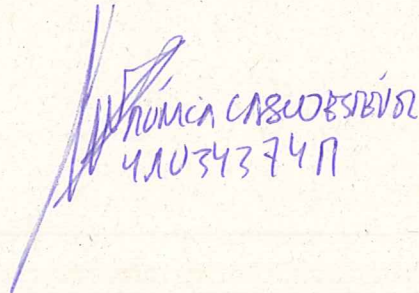 MÓNICA CASCO ESTÉVEZ
41034374M